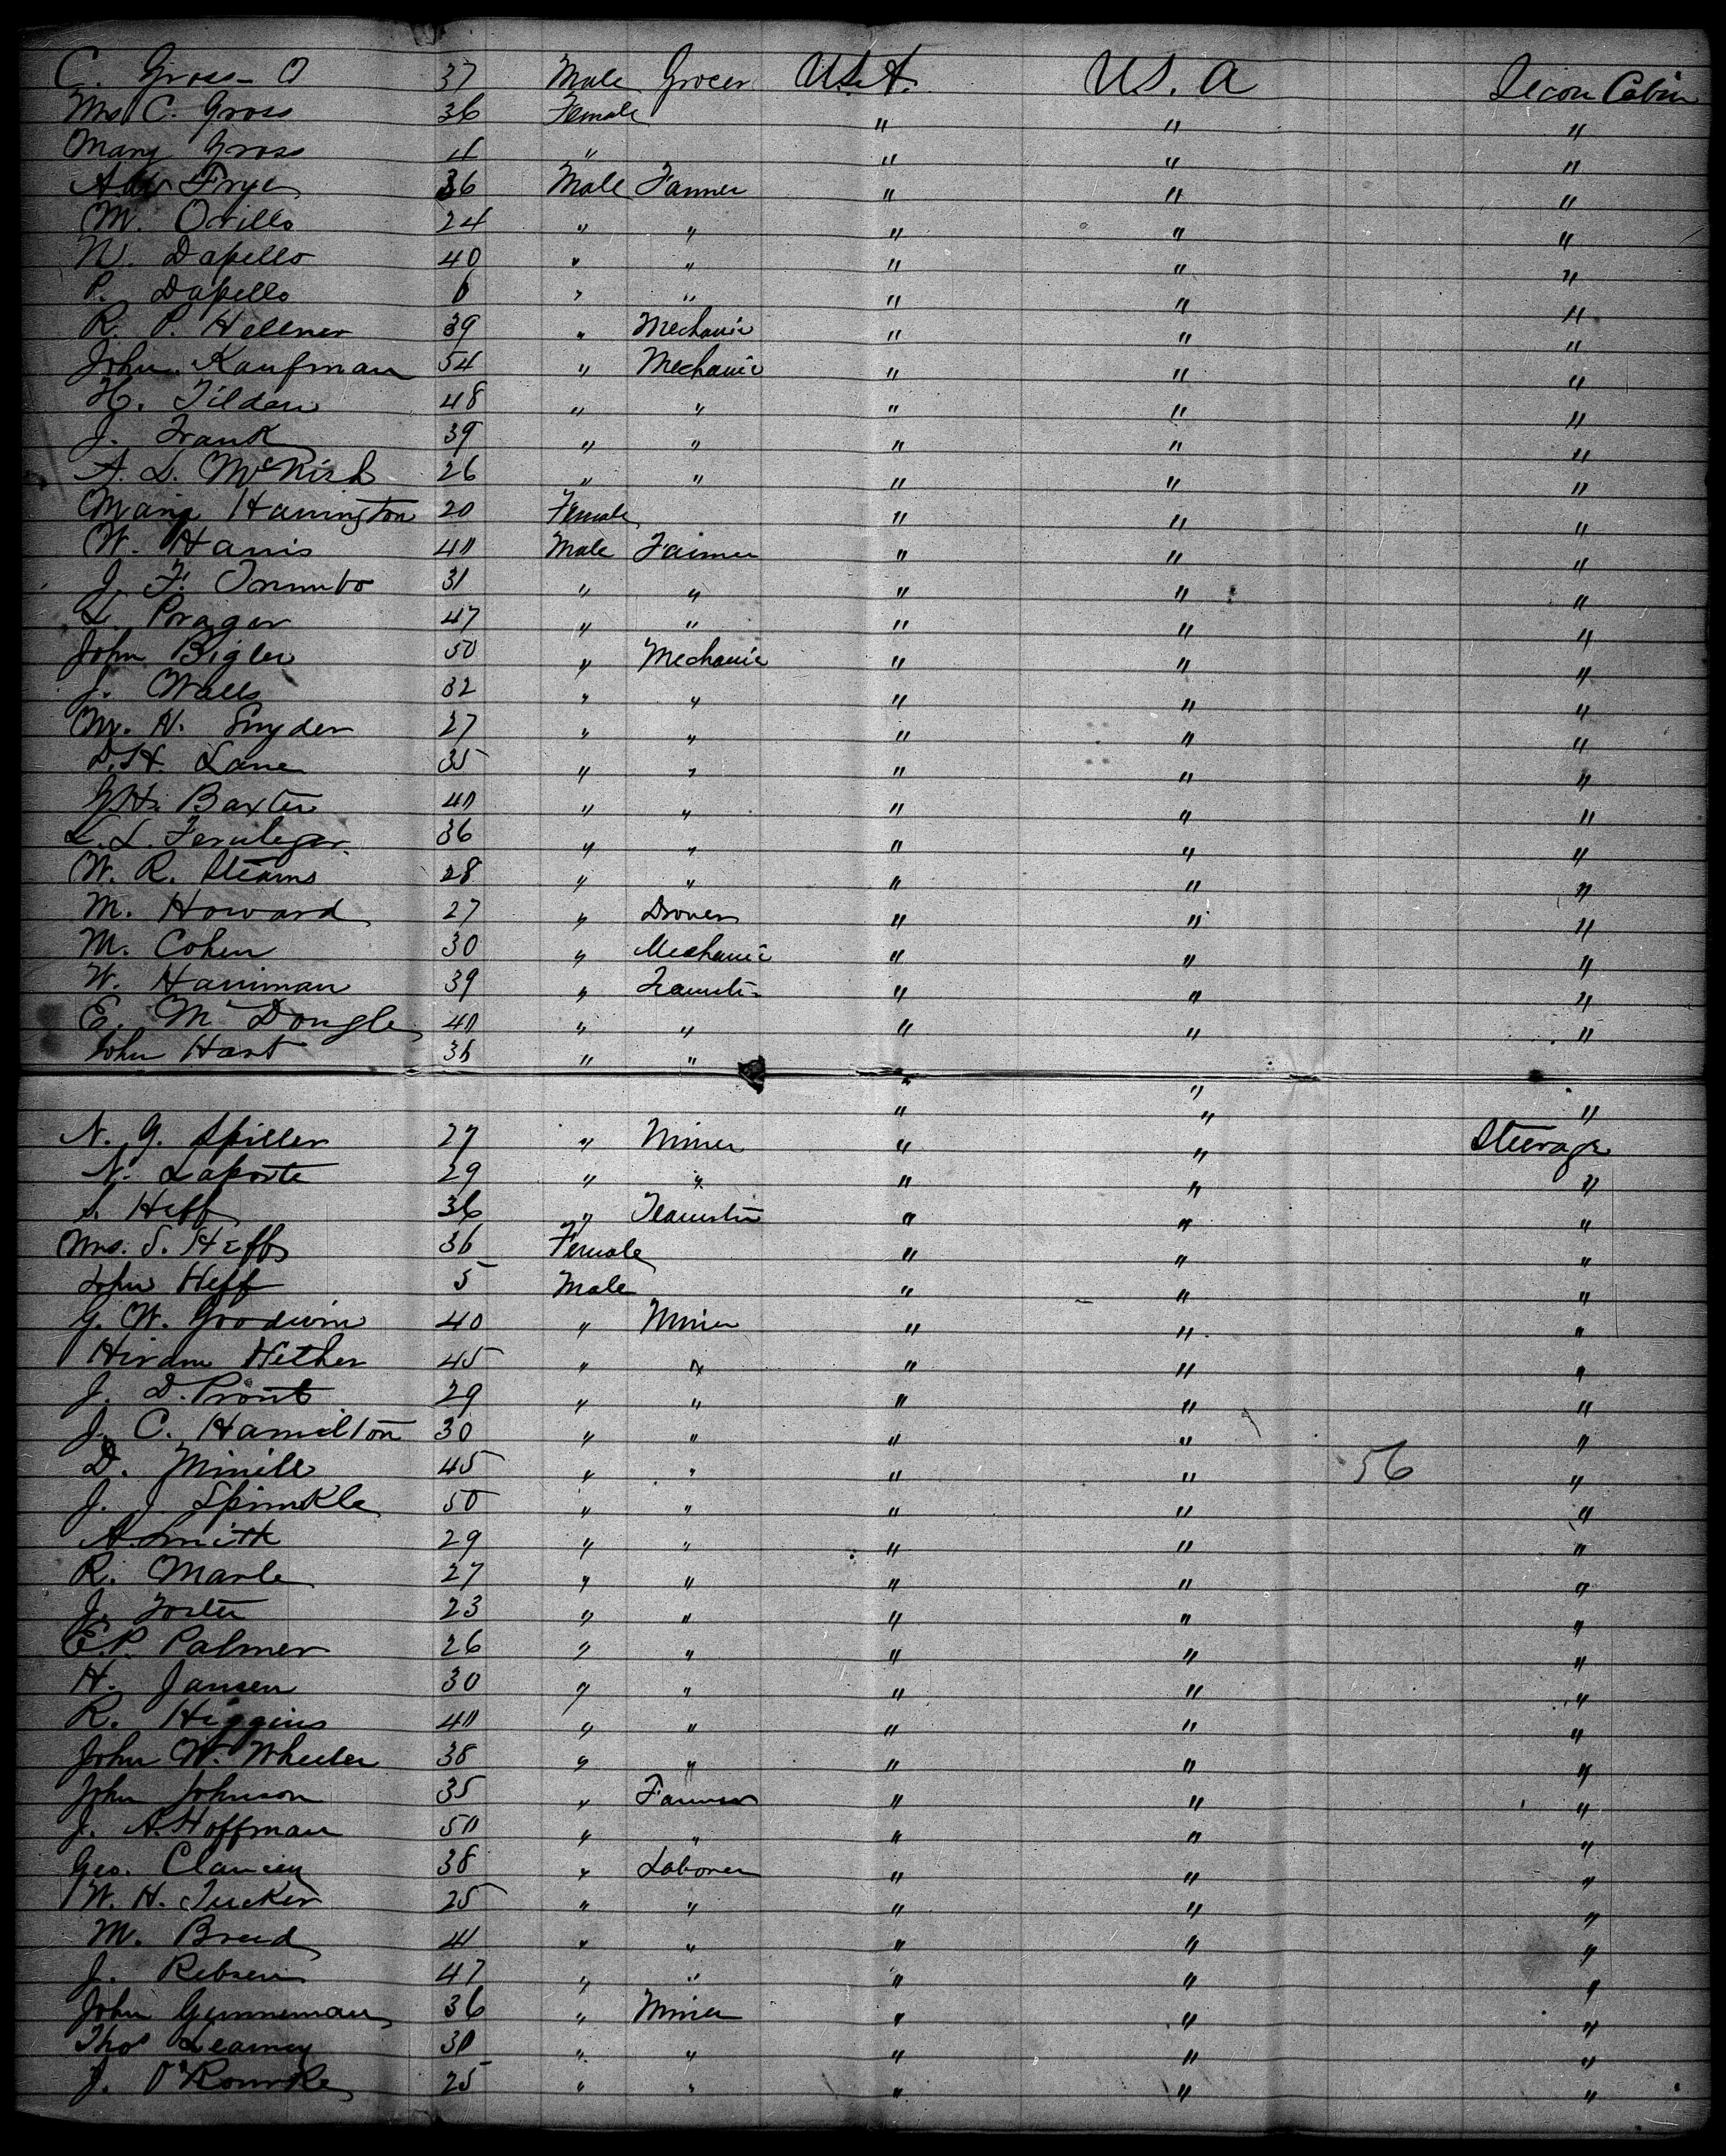 C. Gross 37 Male Grocer U.S.A. U.S.A Secon Cabin
Mrs C. Gross 36 Female " " "
Mary Gross 4 " " " "
Frye 36 Male Farmer " " "
M. Orillo 24 " " " " "
N. Dapello 40 " " " " "
P. Dapello 6 " " " " "
R. P. Hellner 39 " Mechanic " " "
John Kaufman 54 " Mechanic " " "
H. Tilden 48 " " " " "
J. Frank 39 " " " " "
A. L. McKish 26 " " " " "
Harrington 20 Female " " "
W. Harris 40 Male Farmer " " "
J. F. Trumbo 31 " " " " "
L. Pragar 47 " " " " "
John Bigler 50 " Mechanic " " "
J. Walls 32 " " " " "
M. H. Snyder 27 " " " " "
D. H. Lane 35 " " " " "
G. H. Baxter 40 " " " " "
L. L. 36 " " " " "
W. R. Stearns 28 " " " " "
M. Howard 27 " Drover " " "
M. Cohen 30 " Mechanic " " "
W. Harriman 39 " Teamster " " "
E. McDongle 40 " " " " "
John Hart 36 " " " " "
" " "
N. G. Spiller 27 " Miner " " Steerage
N. Laporte 29 " " " " "
S. Heff 36 " Teamster " " "
Mrs. S. Heff 36 Female " " "
John Heff 5 Male " " "
G. W. Goodwin 40 " Miner " " "
Hiram Hether 45 " " " " "
J. D. Prout 29 " " " " "
J. C. Hamilton 30 " " " " "
D. 45 " " " " 56 "
J. J Sprinkle 50 " " " " "
A. Smith 29 " " " " "
R. Marle 27 " " " " "
J. Foster 23 " " " " "
E. P. Palmer 26 " " " " "
H. Jansen 30 " " " " "
R. Higgins 40 " " " " "
John W. Wheeler 38 " " " " "
John Johnson 35 " Farmer " " "
J. A. Hoffman 50 " " " " "
Geo. Clancey 38 " Laborer " " "
W. H. Tucker 25 " " " " "
M. Breed 41 " " " " "
J. Rebsen 47 " " " " "
John Gunneman 36 " Miner " " "
Thos Learney 30 " " " " "
J. O'Rourke 25 " " " " "